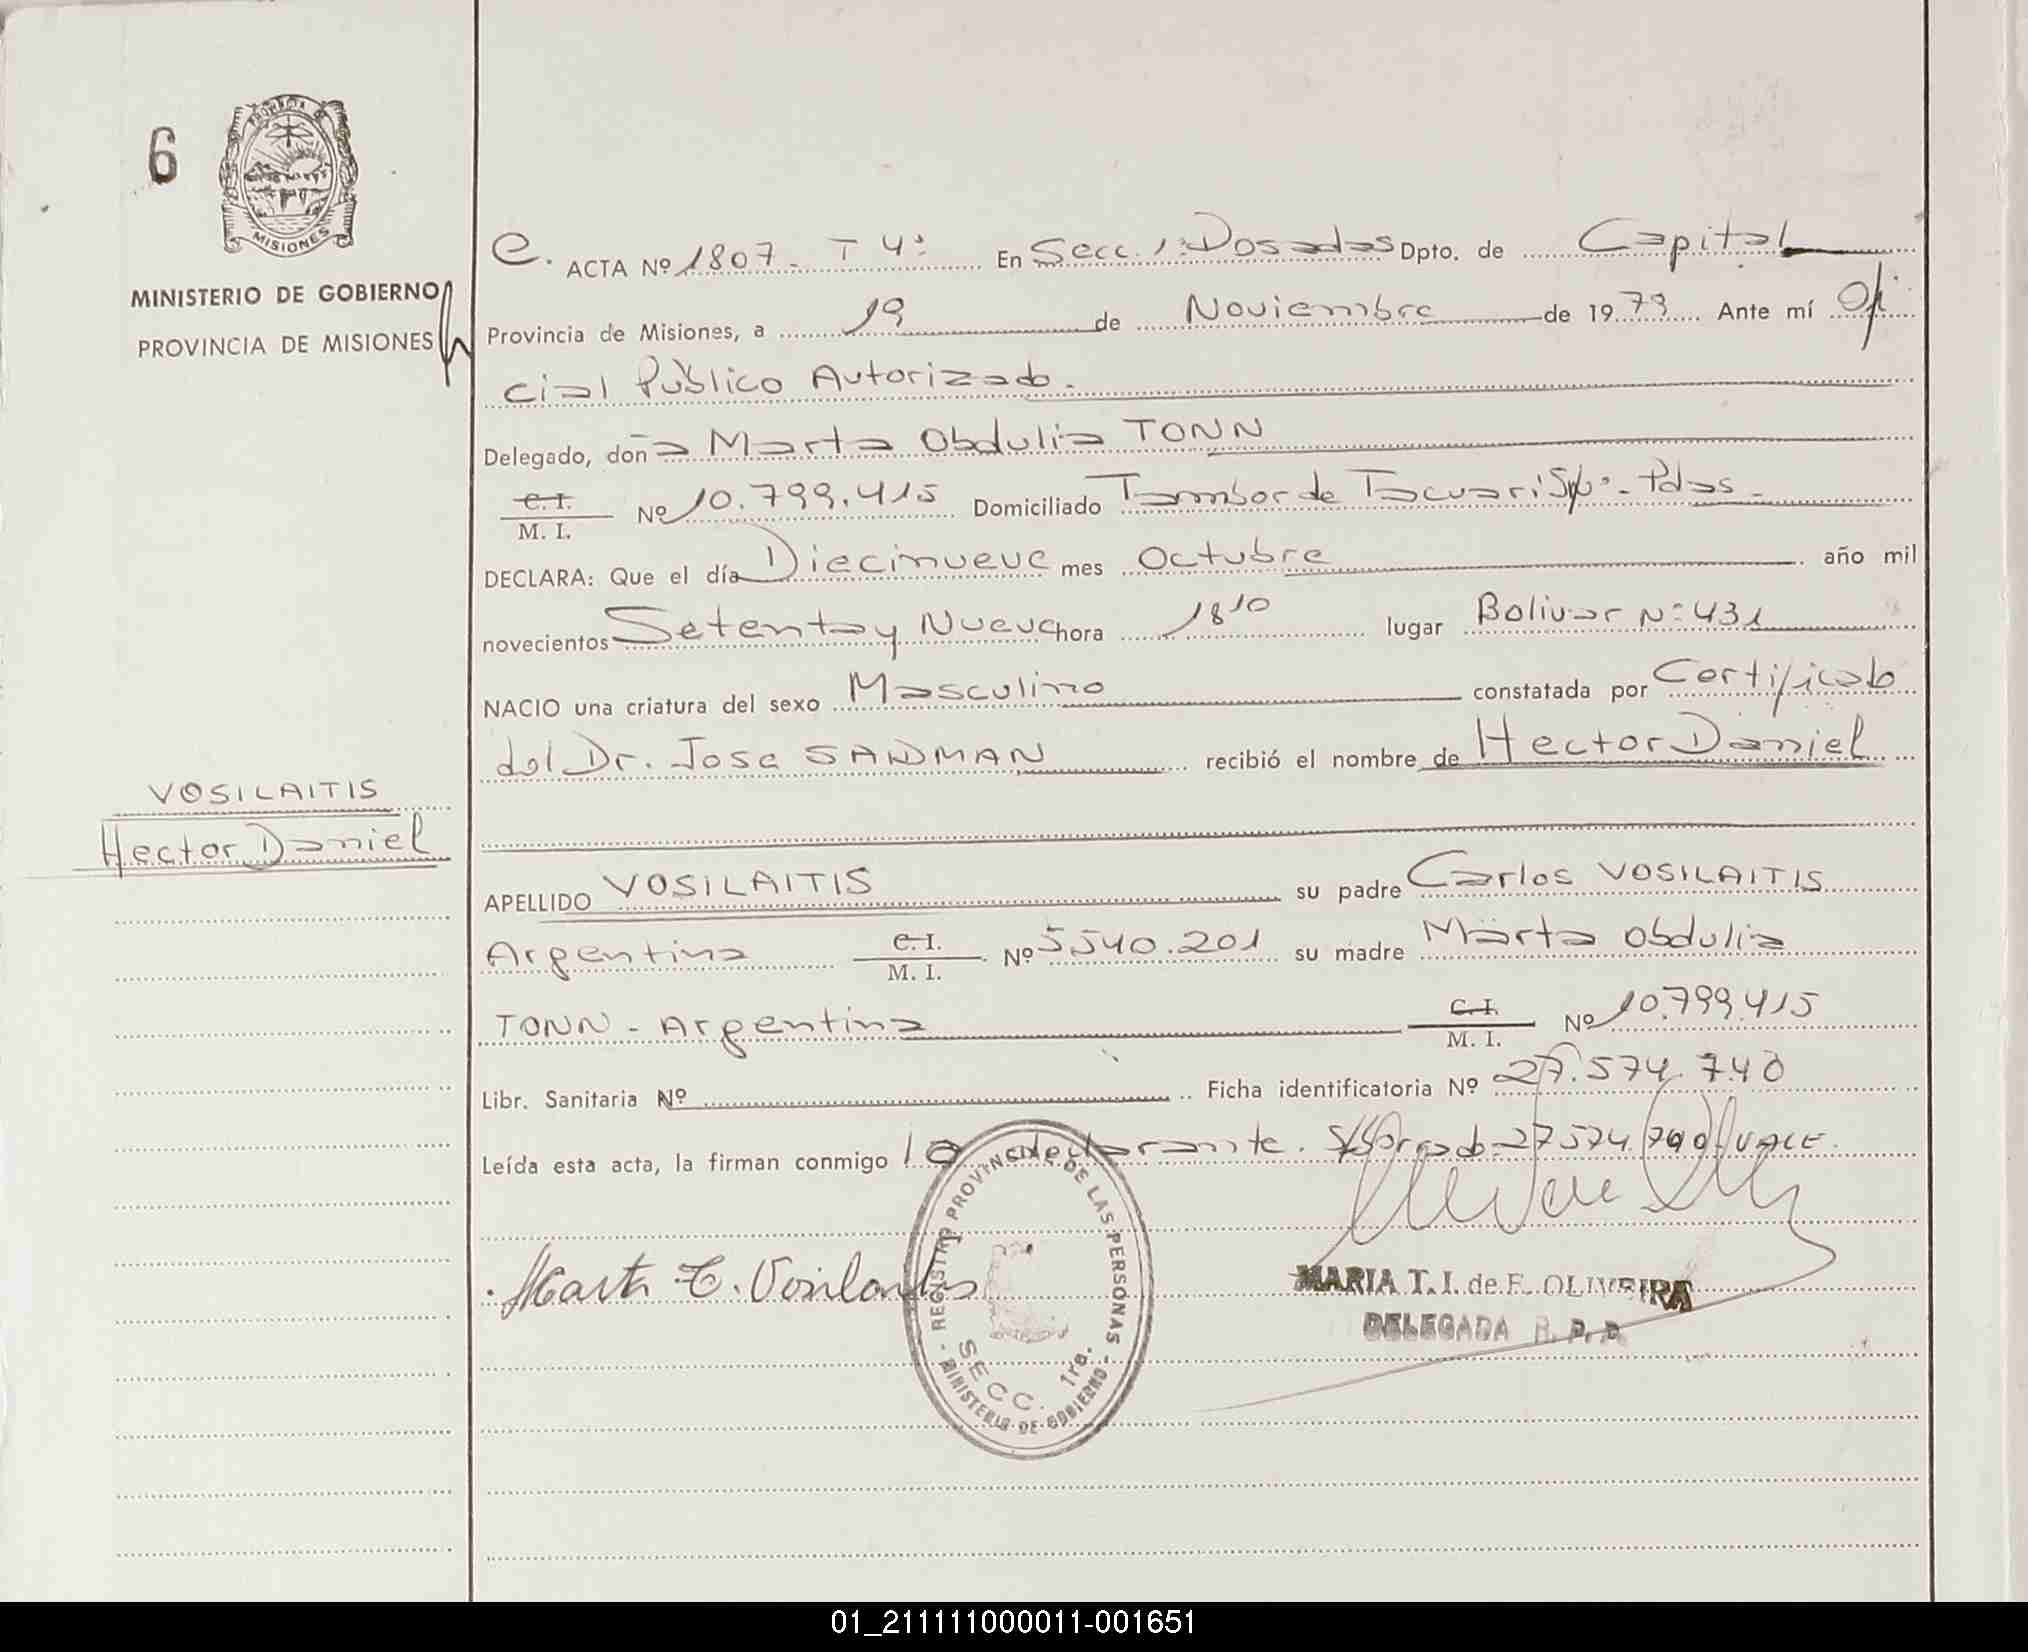 6
PROVINCIA
MISIONES
MINISTERIO DE GOBIERNO
PROVINCIA DE MISIONES
VOSILAITIS
Hector Daniel
C. ACTA Nº 1807 - T 4º En Secc. 1º Posadas Dpto. de Capital
Provincia de Misiones, a 19 de Noviembre de 1979 Ante mí Ofi
cial Público Autorizado.
Delegado, doña Marta Obdulia TONN
C. I.
M. I. Nº 10.799.415 Domiciliado Tambor de Tacuari S/Nº - Pdas -
DECLARA: Que el día Diecinueve mes Octubre año mil
novecientos Setenta y Nueve hora 18 10 lugar Bolivar Nº 431
NACIO una criatura del sexo Masculino constatada por Certificado
del Dr. Jose SANDMAN recibió el nombre de Hector Daniel
APELLIDO VOSILAITIS su padre Carlos VOSILAITIS
Argentina C. I. M. I. Nº 5540.201 su madre Marta Obdulia
TONN - Argentina C. I. M. I. Nº 10.799.415
Libr. Sanitaria Nº Ficha identificatoria Nº 27.574.740
Leída esta acta, la firman conmigo la declarante. S/borrado = 27574.740 - VALE.
Marta T. Vosilaitis
REGISTRO PROVINCIAL DE LAS PERSONAS
SECC. 1ra.
MINISTERIO DE GOBIERNO
MARIA T. I. de F. OLIVEIRA
DELEGADA R. P. P.
01_211111000011-001651